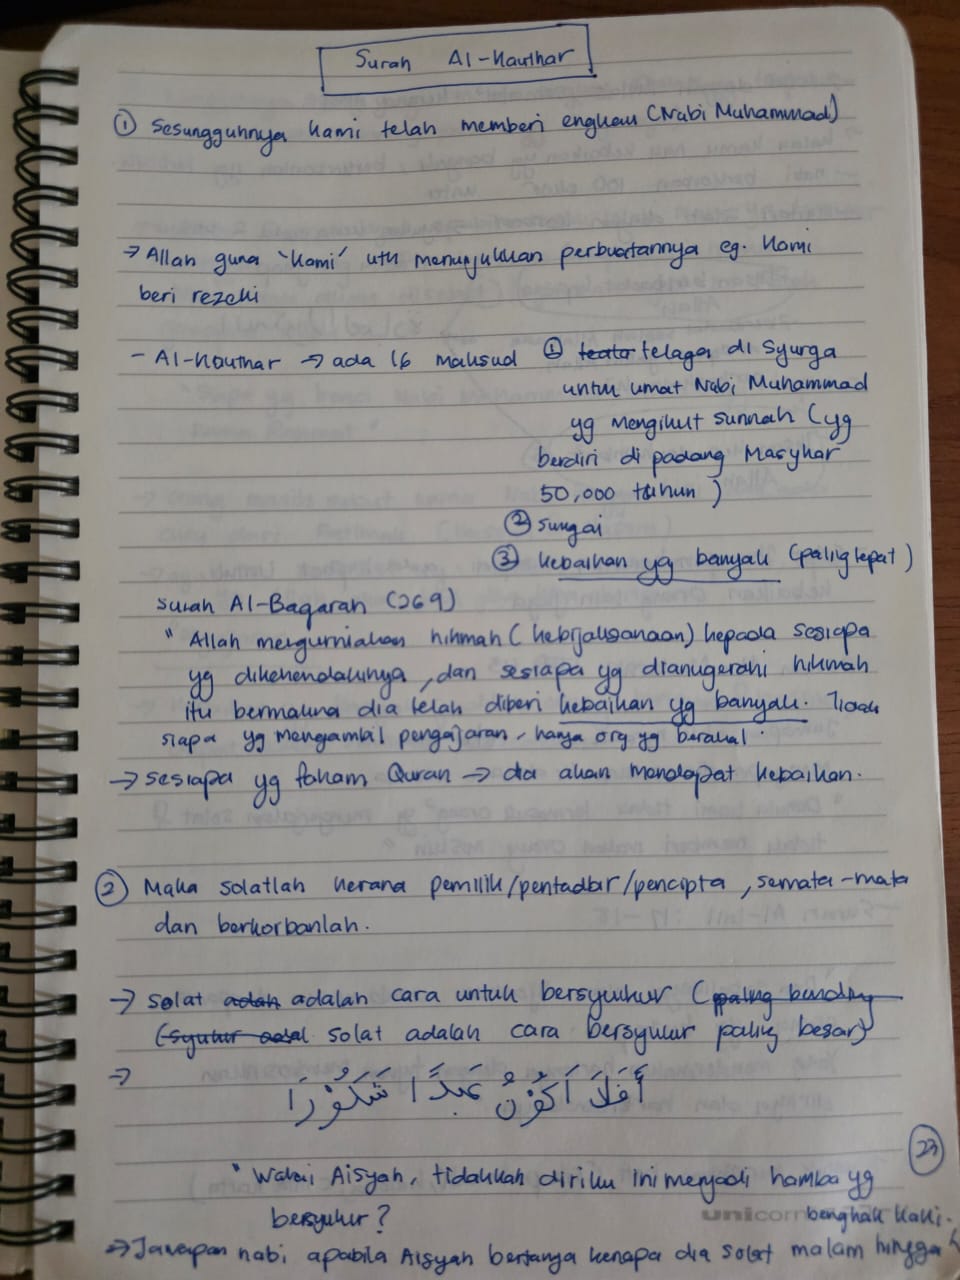 Surah Al-Kauthar
① Sesungguhnya Kami telah memberi engkau (Nabi Muhammad)
→ Allah guna 'Kami' utk menunjukkan perbuatannya eg. Kami
beri rezeki
- Al-Kauthar → ada 16 maksud ① telaga di Syurga
untuk umat Nabi Muhammad
yg mengikut sunnah (yg
berdiri di padang Masyhar
50,000 tahun)
② sungai
③ kebaikan yg banyak (paling tepat)
Surah Al-Baqarah (269)
" Allah mengurniakan hikmah (kebijaksanaan) kepada sesiapa
yg dikehendakinya, dan sesiapa yg dianugerahi hikmah
itu bermakna dia telah diberi kebaikan yg banyak. Tiada
siapa yg mengambil pengajaran, hanya org yg berakal.
→ sesiapa yg faham Quran → dia akan mendapat kebaikan.
② Maka solatlah kerana pemilik/pentadbir/pencipta, semata-mata
dan berkorbanlah.
→ Solat adalah adalah cara untuk bersyukur (paling
(syukur solat adalah cara bersyukur paling besar)
→ أَفَلَا أَكُوْنُ عَبْدًا شَكُوْرًا
23
" Wahai Aisyah, tidakkah diriku ini menjadi hamba yg
bersyukur?
unicorn
bengkak kaki.
→ Jawapan nabi apabila Aisyah bertanya kenapa dia solat malam hingga